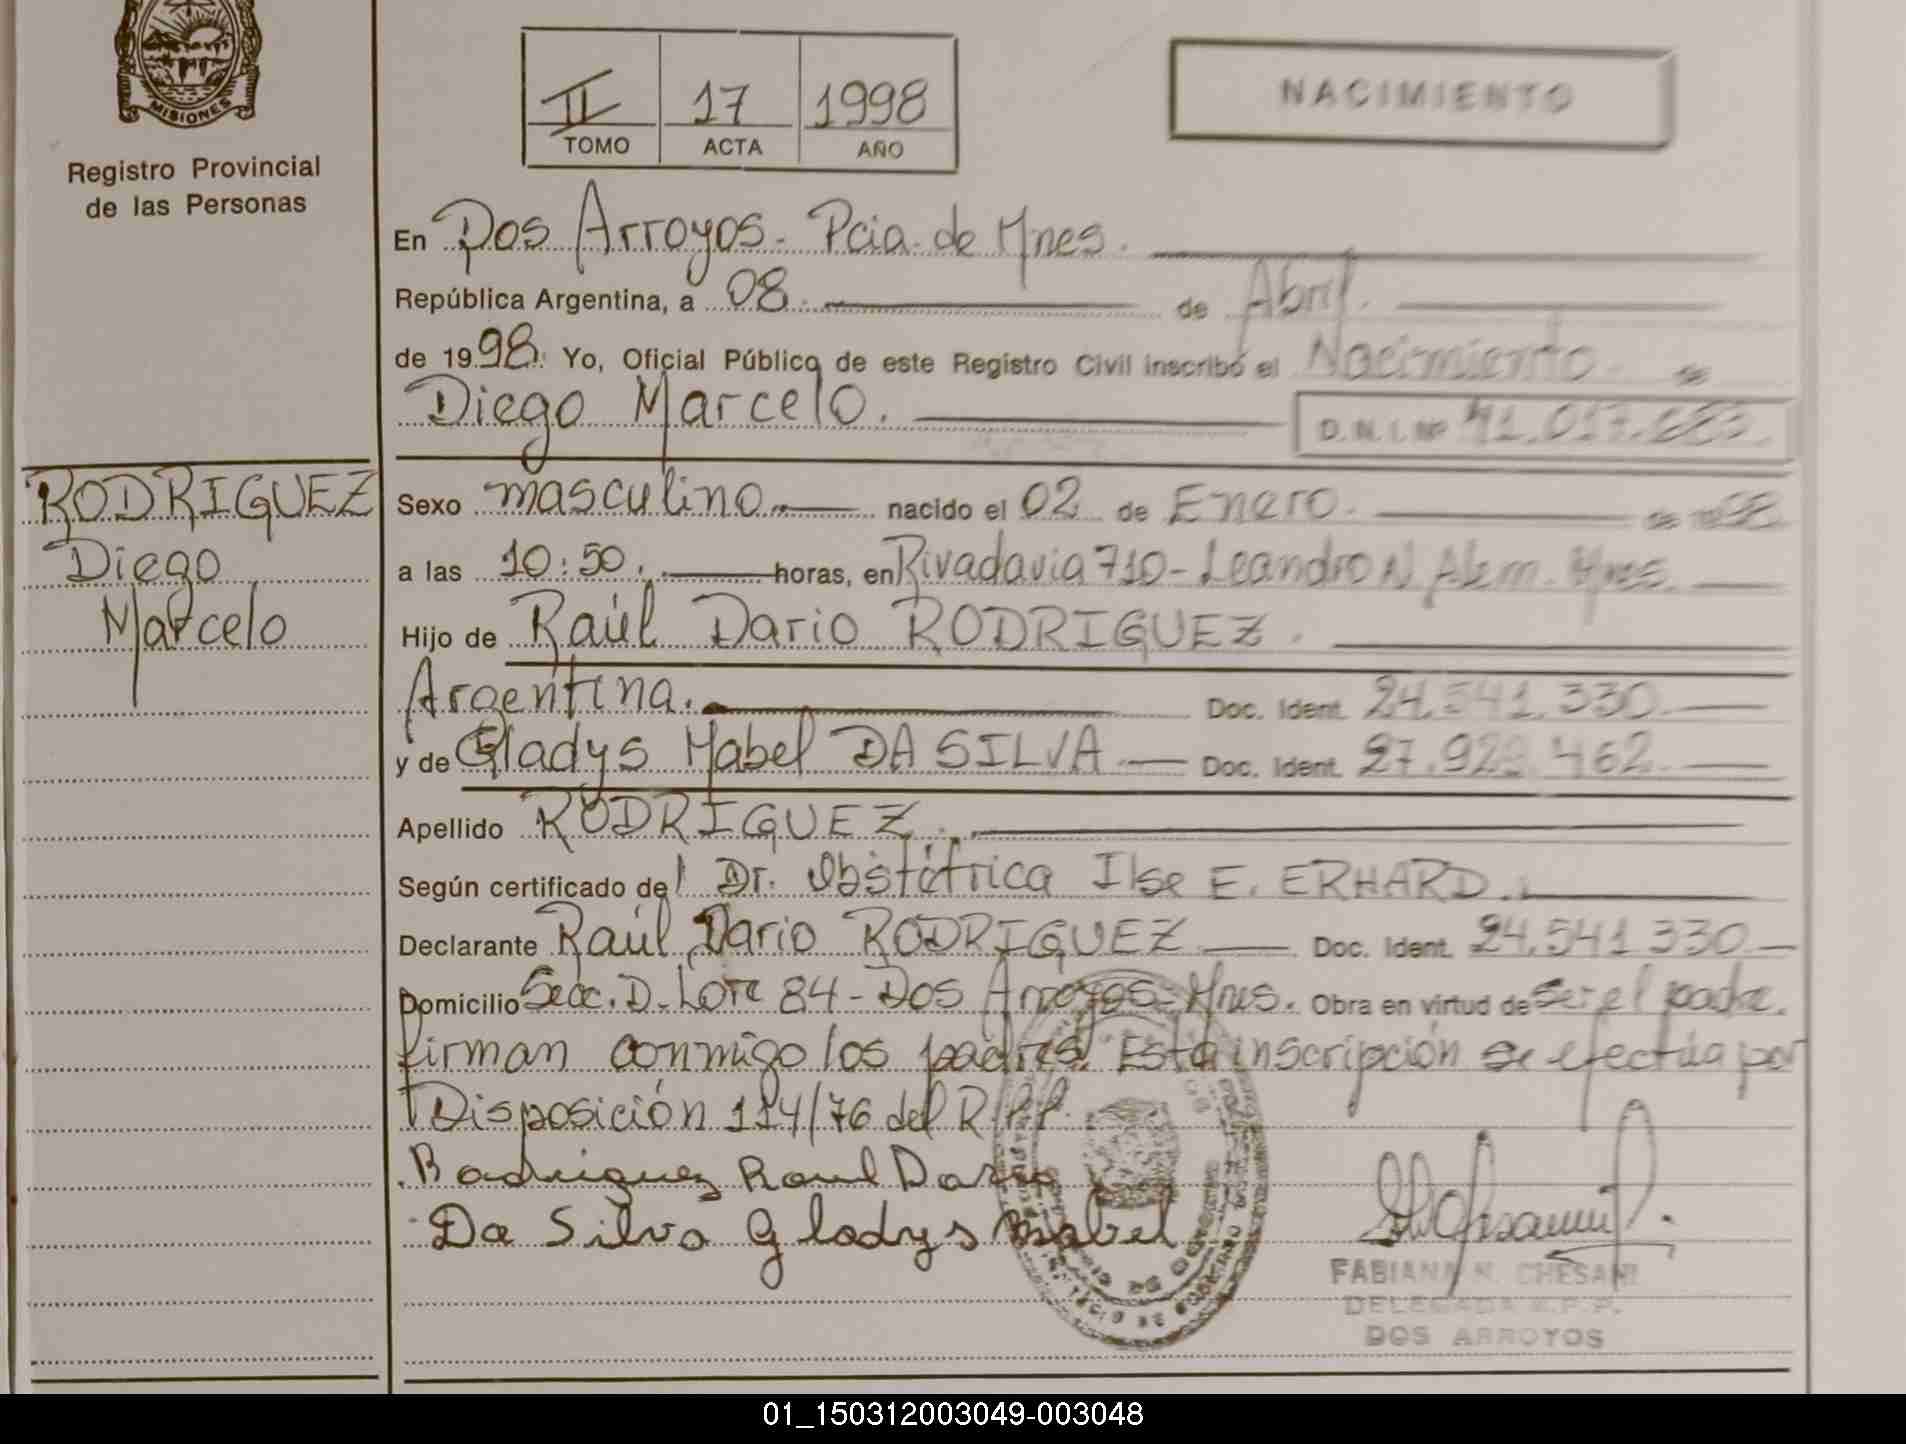 MISIONES
Registro Provincial
de las Personas
II 17 1998
TOMO ACTA AÑO
NACIMIENTO
En Dos Arroyos - Pcia. de Mnes.
República Argentina, a 08. de Abril.
de 1998. Yo, Oficial Público de este Registro Civil inscribo el Nacimiento. de
Diego Marcelo. D.N.I. Nº
RODRIGUEZ
Diego
Marcelo
Sexo masculino nacido el 02 de Enero. de 1998
a las 10:50. horas, en Rivadavia 710 - Leandro N. Alem. Mnes.
Hijo de Raúl Dario RODRIGUEZ.
Argentina. Doc. Ident. 24.541.330.
y de Gladys Mabel DA SILVA Doc. Ident.
Apellido RODRIGUEZ.
Según certificado de Dr. Obstétrica Ilse E. ERHARD.
Declarante Raúl Dario RODRIGUEZ Doc. Ident. 24.541.330
Domicilio Secc. D. Lote 84 - Dos Arroyos - Mnes. Obra en virtud de ser el padre.
firman conmigo los padres. Esta inscripción se efectúa por
Disposición 114/76 del R.P.P.
Rodriguez Raul Dario
Da Silva Gladys Mabel
FABIANA N. CHESANI
DELEGADA R.P.P.
DOS ARROYOS
01_150312003049-003048